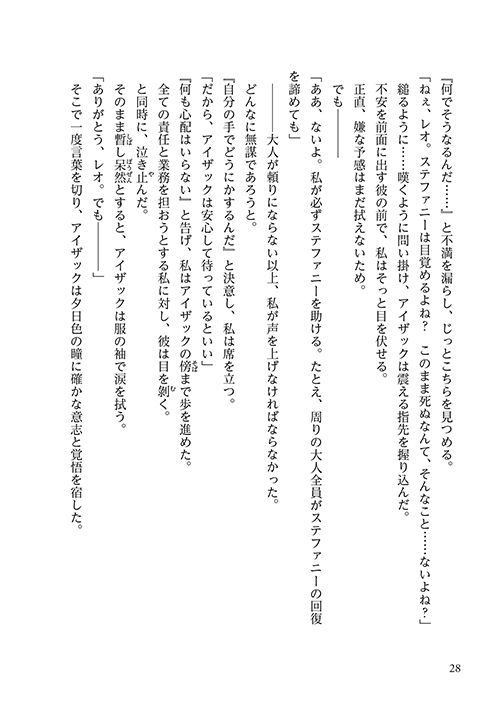 『何でそうなるんだ……』と不満を漏らし、じっとこちらを見つめる。
「ねぇ、レオ。ステファニーは目覚めるよね？　このまま死ぬなんて、そんなこと……ないよね？」
縋るように……嘆くように問い掛け、アイザックは震える指先を握り込んだ。
不安を前面に出す彼の前で、私はそっと目を伏せる。
正直、嫌な予感はまだ拭えないため。
でも————
「ああ、ないよ。私が必ずステファニーを助ける。たとえ、周りの大人全員がステファニーの回復
を諦めても」
————大人が頼りにならない以上、私が声を上げなければならなかった。
どんなに無謀であろうと。
『自分の手でどうにかするんだ』と決意し、私は席を立つ。
「だから、アイザックは安心して待っているといい」
『何も心配はいらない』と告げ、私はアイザックの傍まで歩を進めた。
全ての責任と業務を担おうとする私に対し、彼は目を剝く。
と同時に、泣き止んだ。
そのまま暫し呆然とすると、アイザックは服の袖で涙を拭う。
「ありがとう、レオ。でも————」
そこで一度言葉を切り、アイザックは夕日色の瞳に確かな意志と覚悟を宿した。
28